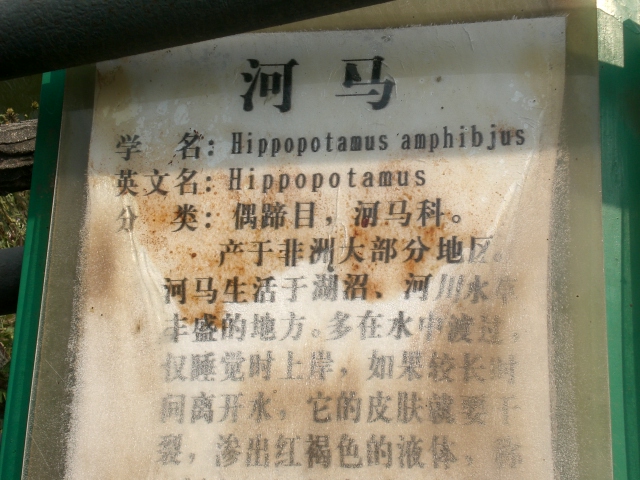 河马
学 名：Hippopotamus amphibjus
英文名：Hippopotamus
分 类：偶蹄目，河马科。
产于非洲大部分地区。
河马生活于湖沼、河川水草
丰盛的地方。多在水中渡过，
仅睡觉时上岸，如果较长时
间离开水，它的皮肤就要干
裂，渗出红褐色的液体，